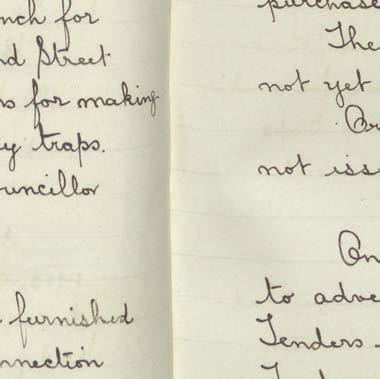 nch for
nd Street
s for making
y traps.
uncillor
furnished
nnection
purchase
The
not yet
Or
not iss
On
to adve
Tenders